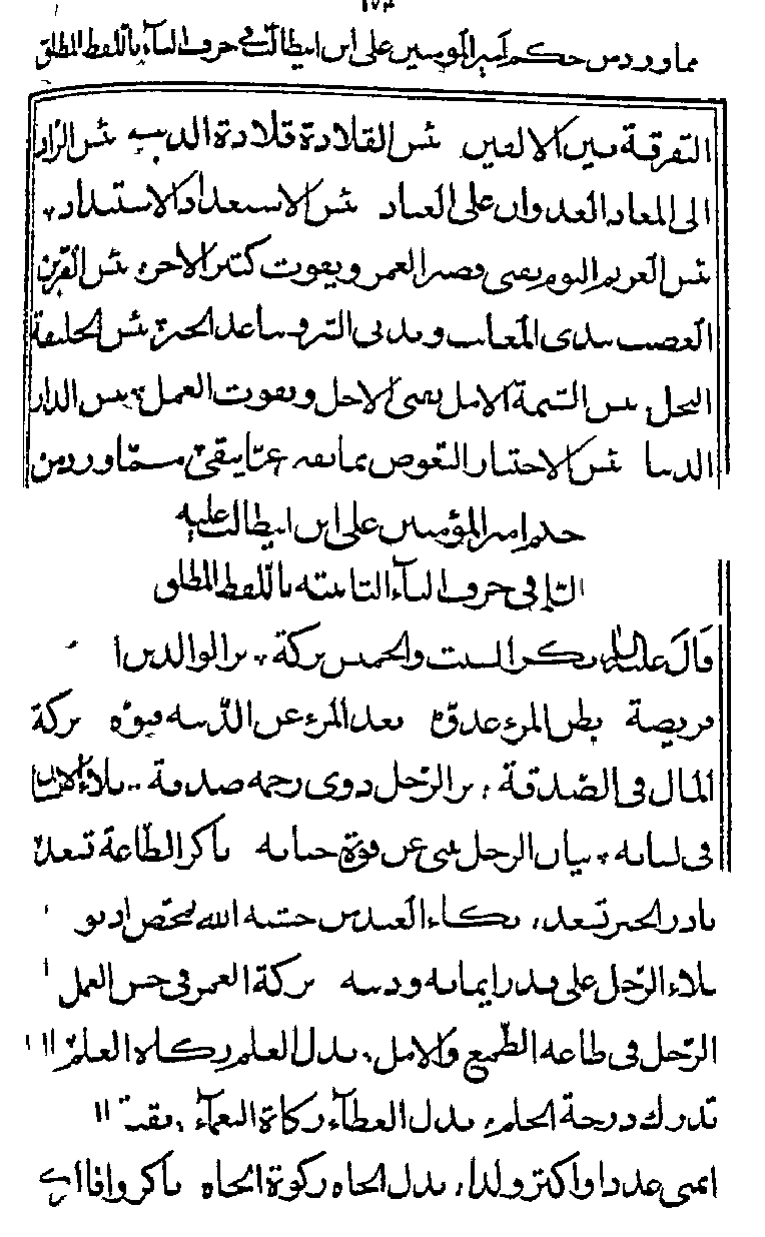 ١٧٣
مما ورد من حكم أمير المؤمنين علي ابن ابيطالب في حرف الباء باللفظ المطلق
التفرقة بين الالفين بئس القلادة قلادة الدين بئس الزاد
الى المعاد العدوان على العباد بئس الاستعداد الاستبداد
بئس الغريم النوم يفنى قصير العمر ويفوت كثير الاجر بئس القرين
الغضب يبدى المعائب ويدنى الشر ويباعد الخير بئس الخليقة
البخل بئس الشيمة الامل يفنى الاجل ويفوت العمل بئس الدار
الدنيا بئس الاختيار التعوض بما يفنى عمّا يبقى ممّا ورد من
حكم امير المؤمنين على ابن ابيطالب عليه
في حرف الباء الثابتة باللفظ المطلق
قال عليه السلام بكر السبت والخميس بركة بر الوالدين
فريضة بطن المرء عدوّه بعد المرء عن الدنية فتوّة بركة
المال فى الصّدقة بر الرّجل ذوى رحمه صدقة بلاء الانسان
فى لسانه بيان الرجل ينبئ عن قوة جنانه باكر الطّاعة تسعد
بادر الخير تسعد بكاء العبد من خشية الله يمحّص ذنو
بلاء الرّجل على قدر ايمانه ودينه بركة العمر فى حسن العمل
الرّجل فى طاعة الطّمع والامل بذل العلم زكاة العلم
تدرك درجة الحلم بذل العطاء زكاة النعماء بقيّة
انمى عددا واكثر ولدا بذل الجاه زكوة الجاه باكروا